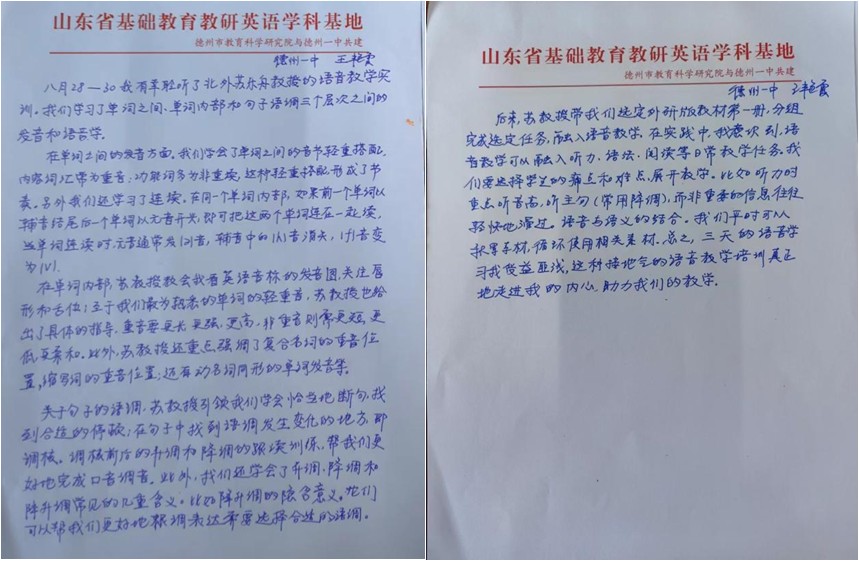 山东省基础教育教研英语学科基地
德州市教育科学研究院与德州一中共建
德州一中 王艳霞
八月28—30我有幸聆听了北外苏东舟教授的语音教学实
训。我们学习了单词之间、单词内部和句子语调三个层次之间的
发音和语音学。
在单词之间的发音方面,我们学会了单词之间的音节轻重搭配,
内容词汇常为重音;功能词多为非重读,这种轻重搭配形成了节
奏。另外我们还学习了连读。在同一个单词内部,如果前一个单词以
辅音结尾后一个单词以元音开头,即可把这两个单词连在一起读,
当单词连读时,元音通常发 音,辅音中的/h/音消失,/f/音变
为/v/.
在单词内部,苏教授教会我看英语音标的发音图,关注唇
形和舌位;至于我们最为熟悉的单词的轻重音,苏教授也给
出了具体的指导,重音要更长更强、更高,非重音则需更短、更
低、更柔和。此外,苏教授还重点强调了复合名词的重音位
置,缩写词的重音位置;还有动名词同形的单词发音等。
关于句子的语调,苏教授引领我们学会恰当地断句,找
到合适的停顿;在句子中找到语调发生变化的地方,即
调核。调核前后的升调和降调的跟读训练,帮我们更
好地完成口音调音。此外,我们还学会了升调、降调和
降升调常见的几重含义。比如降升调的隐含意义。他们
可以帮我们更好地根调表达需要选择合适的语调。
山东省基础教育教研英语学科基地
德州市教育科学研究院与德州一中共建
德州一中 王艳霞
后来,苏教授带我们选定外研版教材第一册,分组
完成选定任务,融入语音教学。在实践中,我意识到,语
音教学可以融入听力、语法、阅读等日常教学任务。我
们要选择学生的痛点和难点,展开教学。比如听力时
重点听首尾,听主句(常用降调),而非重要的信息,往往
轻快地滑过。语音与语义的结合。我们平时可以
积累素材,循环使用相关素材。总之,三天的语音学
习我受益匪浅,这种接地气的语音教学培训真正
地走进我的内心,助力我们的教学。